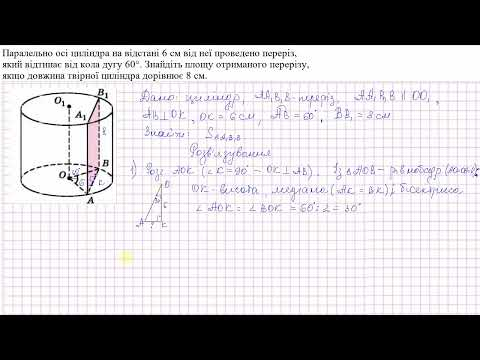 Паралельно осі циліндра на відстані 6 см від неї проведено переріз,
який відтинає від кола дугу 60°. Знайдіть площу отриманого перерізу,
якщо довжина твірної циліндра дорівнює 8 см.
Дано: циліндр, AA₁B₁B - переріз, AA₁B₁B || OO₁,
AB⊥OK, OK = 6 см, AB = 60°, BB₁ = 8 см
Знайти: S
Розв'язування
1) Розг. AOK (∠K = 90° - OK⊥AB). Із ΔAOB - рівнобедр
OK - висота, медіана (AK = BK) і бісектриса
∠AOK = ∠BOK = 60°:2 = 30°
O₁
B₁
A₁
8
O
B
A
O
A
K